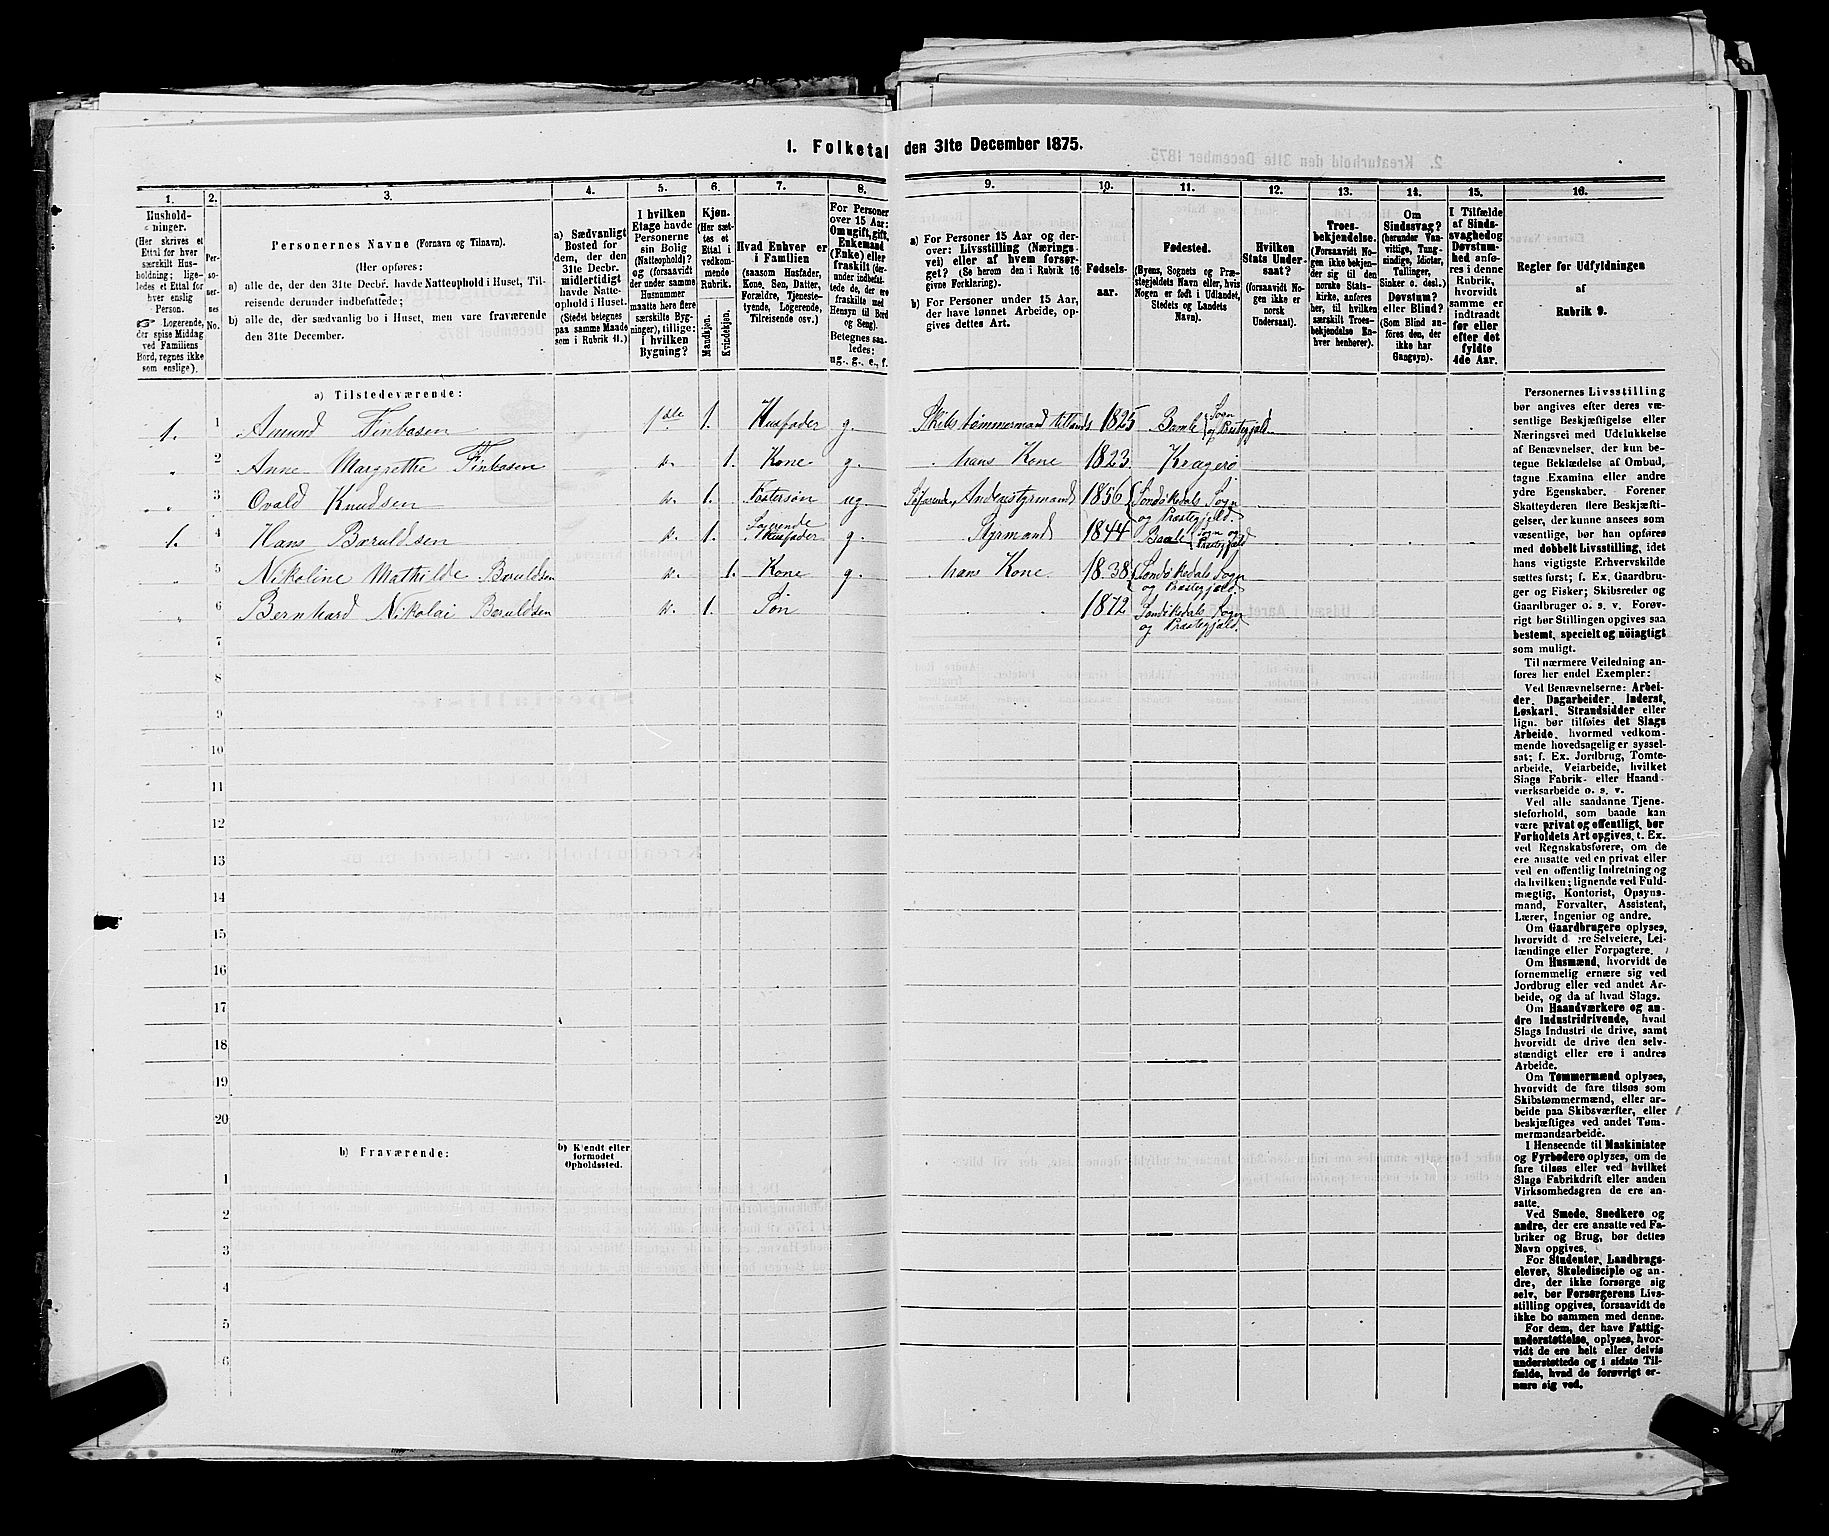 1. Folketal den 31te December 1875.
1.
2.
3.
4.
5.
6.
7.
8.
9.
10.
11.
12.
13.
14.
15.
16.
Husholdninger.
(Her skrives et
Ettal for hver
særskilt Husholdning;
ligeledes et Ettal for
hver enslig
Person.
Logerende,
der spise Middag
ved Familiens
Bord, regnes ikke
som enslige).
Personernes No.
Personernes Navne (Fornavn og Tilnavn).
(Her opføres:
a) alle de, der den 31te Decbr. havde Natteophold i Huset, Tilreisende derunder indbefattede;
b) alle de, der sædvanlig bo i Huset, men vare fraværende
den 31te December.
a) Sædvanligt
Bosted for
dem, der den
31te Decbr.
midlertidigt
havde Natteophold i Huset.
(Stedet betegnes
paa samme Maade
som i Rubrik 11.)
I hvilken
Etage havde
Personerne
sin Bolig
(Natteophold)?
og (forsaavidt
der under samme
Husnummer
maatte høre flere
særskilte Bygninger), tillige:
i hvilken
Bygning?
Kjøn.
(Her sættes et
Ettal i
vedkommende
Rubrik.
Mandkjøn.
Kvindekjøn.
Hvad Enhver er
i Familien
(saasom Husfader,
Kone, Søn, Datter,
Forældre, Tjenestetyende, Logerende,
Tilreisende osv.)
For Personer
over 15 Aar:
Om ugift, gift,
Enkemand
(Enke) eller
fraskilt (derunder indbefattede de, der ere
fraskilte med
Hensyn til Bord
og Seng).
Betegnes saaledes:
ug., g., e., f.
a) For Personer 15 Aar og derover: Livsstilling (Næringsvei) eller af hvem forsørget? (Se herom den i Rubrik 16
givne Forklaring).
b) For Personer under 15 Aar,
der have lønnet Arbeide, opgives dettes Art.
Fødselsaar.
Fødested.
(Byens, Sognets og Præstegjeldets Navn eller, hvis
Nogen er født i Udlandet,
Stedets og Landets
Navn).
Hvilken
Stats Undersaat?
(forsaavidt Nogen ikke er
norsk
Undersaat).
Troesbekjendelse.
(Forsaavidt Nogen ikke bekjender sig til den
norske Statskirke, anføres
her, til hvilken
særskilt Troesbekjendelse Enhver henhører).
Om
Sindssvag?
(herunder Vanvittige, Tungsindige, Idioter,
Tullinger,
Sinker o. desl.)
Døvstum?
eller Blind?
(Som Blind anføres den, der
ikke har
Gangsyn).
I Tilfælde
af Sindssvaghed og
Døvstumhed anføres i denne
Rubrik,
hvorvidt
samme er
indtraadt
før eller
efter det
fyldte
4de Aar.
Regler for Udfyldningen
af
Rubrik 9.
a) Tilstedeværende:
1. 1 Amund Finbosen 1ste 1. Husfader g. Skibstømmermand tillands 1825 Bamle Sogn og Præstegjæld.
„ 2 Anne Margrethe Finbosen do. 1. Kone g. hans Kone 1823. Kragerø
„ 3 Ovald Knudsen do. 1. Fostersøn ug Søfarende, Andenstyrmand 1856 Søndikedals Sogn
og Præstegjæld.
1. 4 Hans Boruldsen do. 1. Logerende Husfader g. Styrmand 1844 Bamle Sogn og Præstegjæld
„ 5 Nikoline Mathilde Boruldsen do. 1. Kone g. hans Kone 1838 Søndikedals Sogn
og Præstegjæld.
„ 6 Bernhard Nikolai Boruldsen do. 1. Søn 1872 Søndikedals Sogn
og Præstegjæld.
7
8
9
10
11
12
13
14
15
16
17
18
19
20
b) Fraværende:
b) Kjendt eller
formodet
Opholdssted.
1
2
3
4
5
6
Personernes Livsstilling
bør angives efter deres væsentlige Beskjæftigelse eller
Næringsvei med Udelukkelse
af Benævnelser, der kun betegne Beklædelse af Ombud,
tagne Examina eller andre
ydre Egenskaber. Forener
Skatteyderen flere Beskjæftigelser, der kunne ansees som
væsentlige, bør han opføres
med dobbelt Livsstilling, idet
hans vigtigste Erhvervskilde
sættes først; f. Ex. Gaardbruger og Fisker; Skibsreder og
Gaardbruger o. s. v. Forøvrigt bør Stillingen opgives saa
bestemt, specielt og nöiagtigt
som muligt.
Til nærmere Veiledning anføres her endel Exempler:
Ved Benævnelserne: Arbeider, Dagarbeider, Inderst,
Løskarl, Strandsidder eller
lign. bør tilføies det Slags
Arbeide, hvormed vedkommende hovedsagelig er sysselsat; f. Ex. Jordbrug, Tomtearbeide, Veiarbeide, hvilket
Slags Fabrik- eller Haandværksarbeide o. s. v.
Ved alle saadanne Tjenesteforhold, som baade kan
være privat og offentligt, bør
Forholdets Art opgives, t. Ex.
ved Regnskabsførere, om de
ere ansatte ved en privat eller
ved en offentlig Indretning og
da hvilken; lignende ved Fuldmægtig, Kontorist, Opsynsmand, Forvalter, Assistent,
Lærer, Ingeniør og andre.
Om Gaardbrugere oplyses,
hvorvidt de ere Selveiere, Leilændinge eller Forpagtere.
Om Husmænd, hvorvidt de
fornemmelig ernære sig ved
Jordbrug eller ved andet Arbeide, og da af hvad Slags.
Om Haandværkere og andre Industridrivende, hvad
Slags Industri de drive, samt
hvorvidt de drive den selvstændigt eller ere i andres
Arbeide.
Om Tømmermænd oplyses,
hvorvidt de fare tilsøs som
Skibstømmermænd, eller arbeide paa Skibsværfter, eller
beskjæftiges ved andet Tømmermandsarbeide.
I Henseende til Maskinister
og Fyrbødere oplyses, om de
fare tilsøs eller ved hvilket
Slags Fabrikdrift eller anden
Virksomhedsgren de ere ansatte.
Ved Smede, Snedkere og
andre, der ere ansatte ved Fabriker og Brug, bør dettes
Navn opgives.
For Studenter, Landbrugselever, Skoledisciple og andre, der ikke forsørge sig
selv, bør Forsørgerens Livsstilling opgives, forsaavidt de
ikke bo sammen med denne.
For dem, der have Fattigunderstøttelse, oplyses, hvorvidt de ere helt eller delvis
understøttede og i sidste Tilfælde, hvad de forøvrigt ernære sig ved.